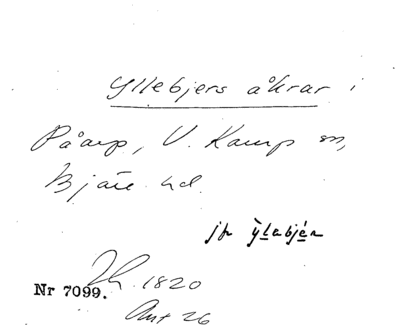 Yllebjers åkrar i
Påarp, V. Karup sn,
Bjäre hd.
jfr ylabjär
1820
Nr 7099.
Akt 26